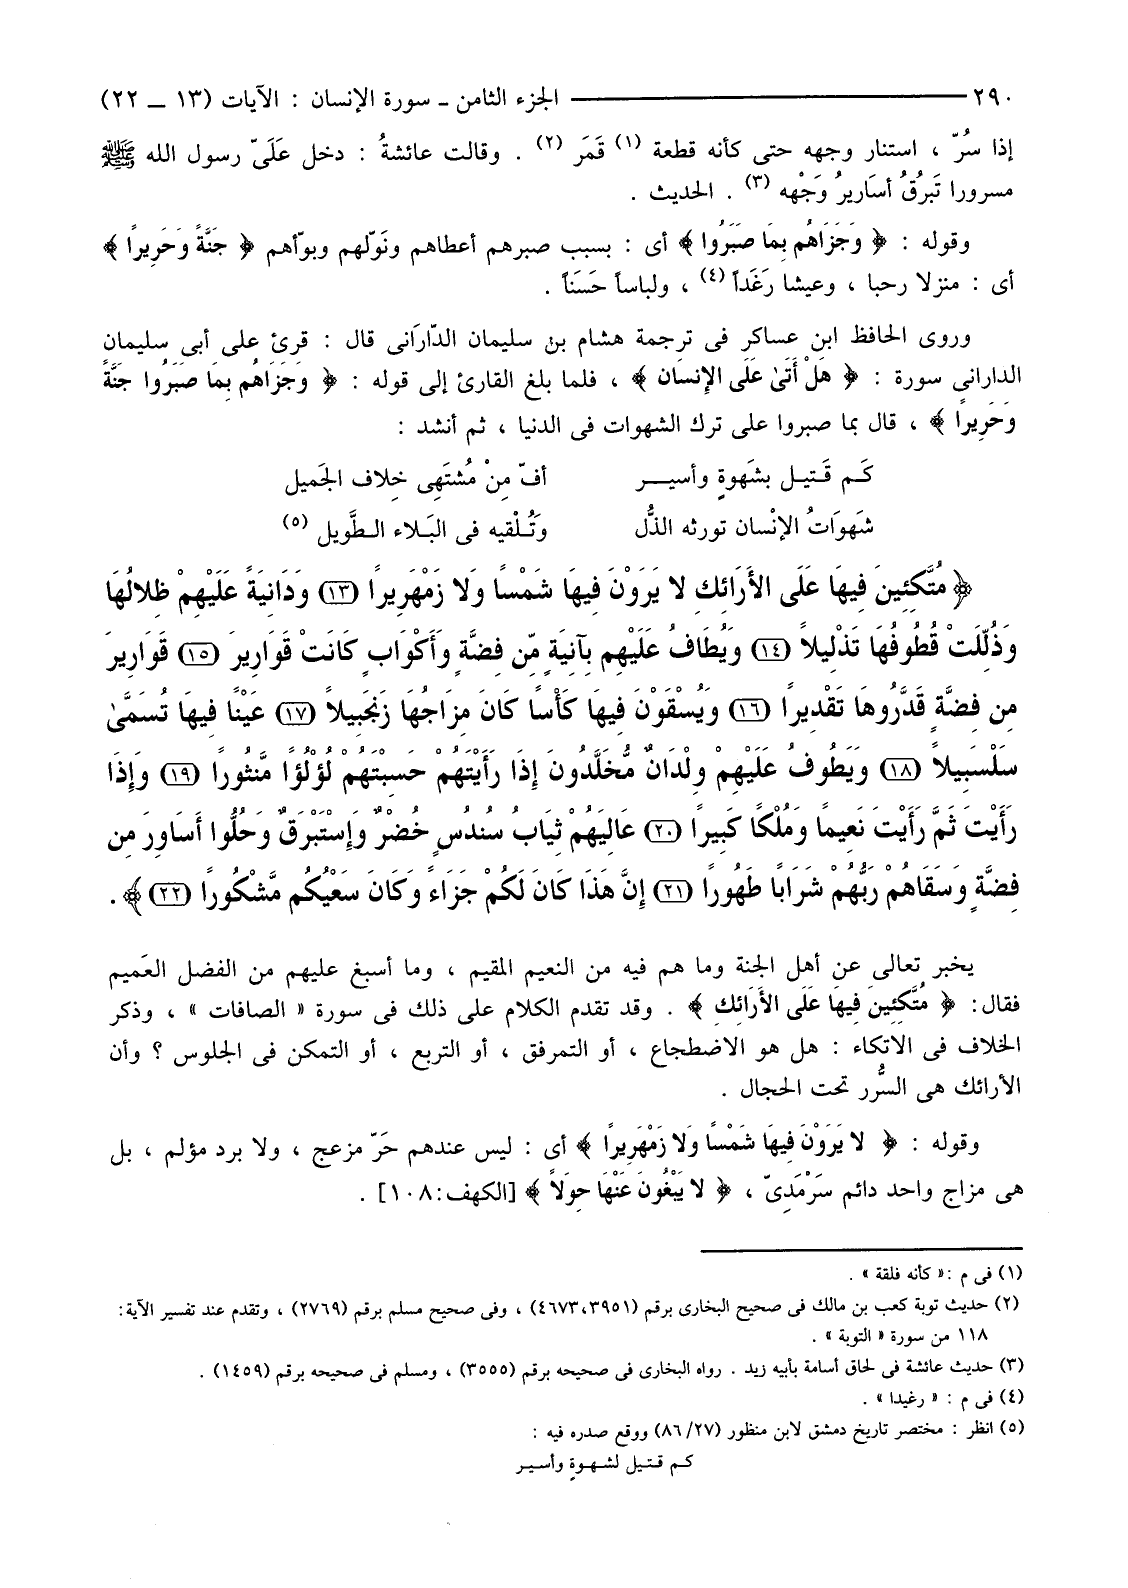 ٢٩٠ ــــــــــــ الجزء الثامن ـ سورة الإنسان : الآيات (١٣ ــ ٢٢)
إذا سُرّ ، استنار وجهه حتى كأنه قطعة (١) قَمَر (٢) . وقالت عائشةُ : دخل علَىّ رسول الله ﷺ
مسرورا تَبرُقُ أسَاريرُ وَجْهه (٣) . الحديث .
وقوله : ﴿ وَجَزَاهُم بِمَا صَبَرُوا ﴾ أى : بسبب صبرهم أعطاهم ونَوّلهم وبوّأهم ﴿ جَنَّةً وَحَرِيرًا ﴾
أى : منزلا رحبا ، وعيشا رَغَداً (٤) ، ولباساً حَسَناً .
وروى الحافظ ابن عساكر فى ترجمة هشام بن سليمان الدّارَانى قال : قرئ على أبى سليمان
الدارانى سورة : ﴿ هَلْ أَتَىٰ عَلَى الإِنسَان ﴾ ، فلما بلغ القارئ إلى قوله : ﴿ وَجَزَاهُم بِمَا صَبَرُوا جَنَّةً
وَحَرِيرًا ﴾ ، قال بما صبروا على ترك الشهوات فى الدنيا ، ثم أنشد :
كَم قَتيل بشَهوةٍ وأسيـــر أفّ مِنْ مُشتَهِى خِلاف الجَميل
شَهوَاتُ الإنْسان تورثه الذُّل وَتُلْقيه فى البَلاء الطَّويل (٥)
﴿ مُتَّكِئِينَ فِيهَا عَلَى الأَرَائِكِ لا يَرَوْنَ فِيهَا شَمْسًا وَلا زَمْهَرِيرًا (١٣) وَدَانِيَةً عَلَيْهِمْ ظِلالُهَا
وَذُلِّلَتْ قُطُوفُهَا تَذْلِيلاً (١٤) وَيُطَافُ عَلَيْهِم بِآنِيَةٍ مِّن فِضَّةٍ وَأَكْوَابٍ كَانَتْ قَوَارِيرَ (١٥) قَوَارِيرَ
مِن فِضَّةٍ قَدَّرُوهَا تَقْدِيرًا (١٦) وَيُسْقَوْنَ فِيهَا كَأْسًا كَانَ مِزَاجُهَا زَنجَبِيلاً (١٧) عَيْنًا فِيهَا تُسَمَّىٰ
سَلْسَبِيلاً (١٨) وَيَطُوفُ عَلَيْهِمْ وِلْدَانٌ مُّخَلَّدُونَ إِذَا رَأَيْتَهُمْ حَسِبْتَهُمْ لُؤْلُؤًا مَّنثُورًا (١٩) وَإِذَا
رَأَيْتَ ثَمَّ رَأَيْتَ نَعِيمًا وَمُلْكًا كَبِيرًا (٢٠) عَالِيَهُمْ ثِيَابُ سُندُسٍ خُضْرٌ وَإِسْتَبْرَقٌ وَحُلُّوا أَسَاوِرَ مِن
فِضَّةٍ وَسَقَاهُمْ رَبُّهُمْ شَرَابًا طَهُورًا (٢١) إِنَّ هَذَا كَانَ لَكُمْ جَزَاءً وَكَانَ سَعْيُكُم مَّشْكُورًا (٢٢) ﴾ .
يخبر تعالى عن أهل الجنة وما هم فيه من النعيم المقيم ، وما أسبغ عليهم من الفضل العَميم
فقال : ﴿ مُتَّكِئِينَ فِيهَا عَلَى الأَرَائِكِ ﴾ . وقد تقدم الكلام على ذلك فى سورة « الصافات » ، وذكر
الخلاف فى الاتكاء : هل هو الاضطجاع ، أو التمرفق ، أو التربع ، أو التمكن فى الجلوس ؟ وأن
الأرائك هى السُّرر تحت الحجال .
وقوله : ﴿ لا يَرَوْنَ فِيهَا شَمْسًا وَلا زَمْهَرِيرًا ﴾ أى : ليس عندهم حَرّ مزعج ، ولا برد مؤلم ، بل
هى مزاج واحد دائم سَرْمَدِىّ ، ﴿ لا يَبْغُونَ عَنْهَا حِوَلاً ﴾ [الكهف:١٠٨] .
(١) فى م :« كأنه فلقة » .
(٢) حديث توبة كعب بن مالك فى صحيح البخارى برقم (٤٦٧٣،٣٩٥١) ، وفى صحيح مسلم برقم (٢٧٦٩) ، وتقدم عند تفسير الآية :
١١٨ من سورة « التوبة » .
(٣) حديث عائشة فى لحاق أسامة بأبيه زيد . رواه البخارى فى صحيحه برقم (٣٥٥٥) ، ومسلم فى صحيحه برقم (١٤٥٩) .
(٤) فى م : « رغيدا » .
(٥) انظر : مختصر تاريخ دمشق لابن منظور (٨٦/٢٧) ووقع صدره فيه :
كـم قـتيل لشـهـوةٍ وأسيـر